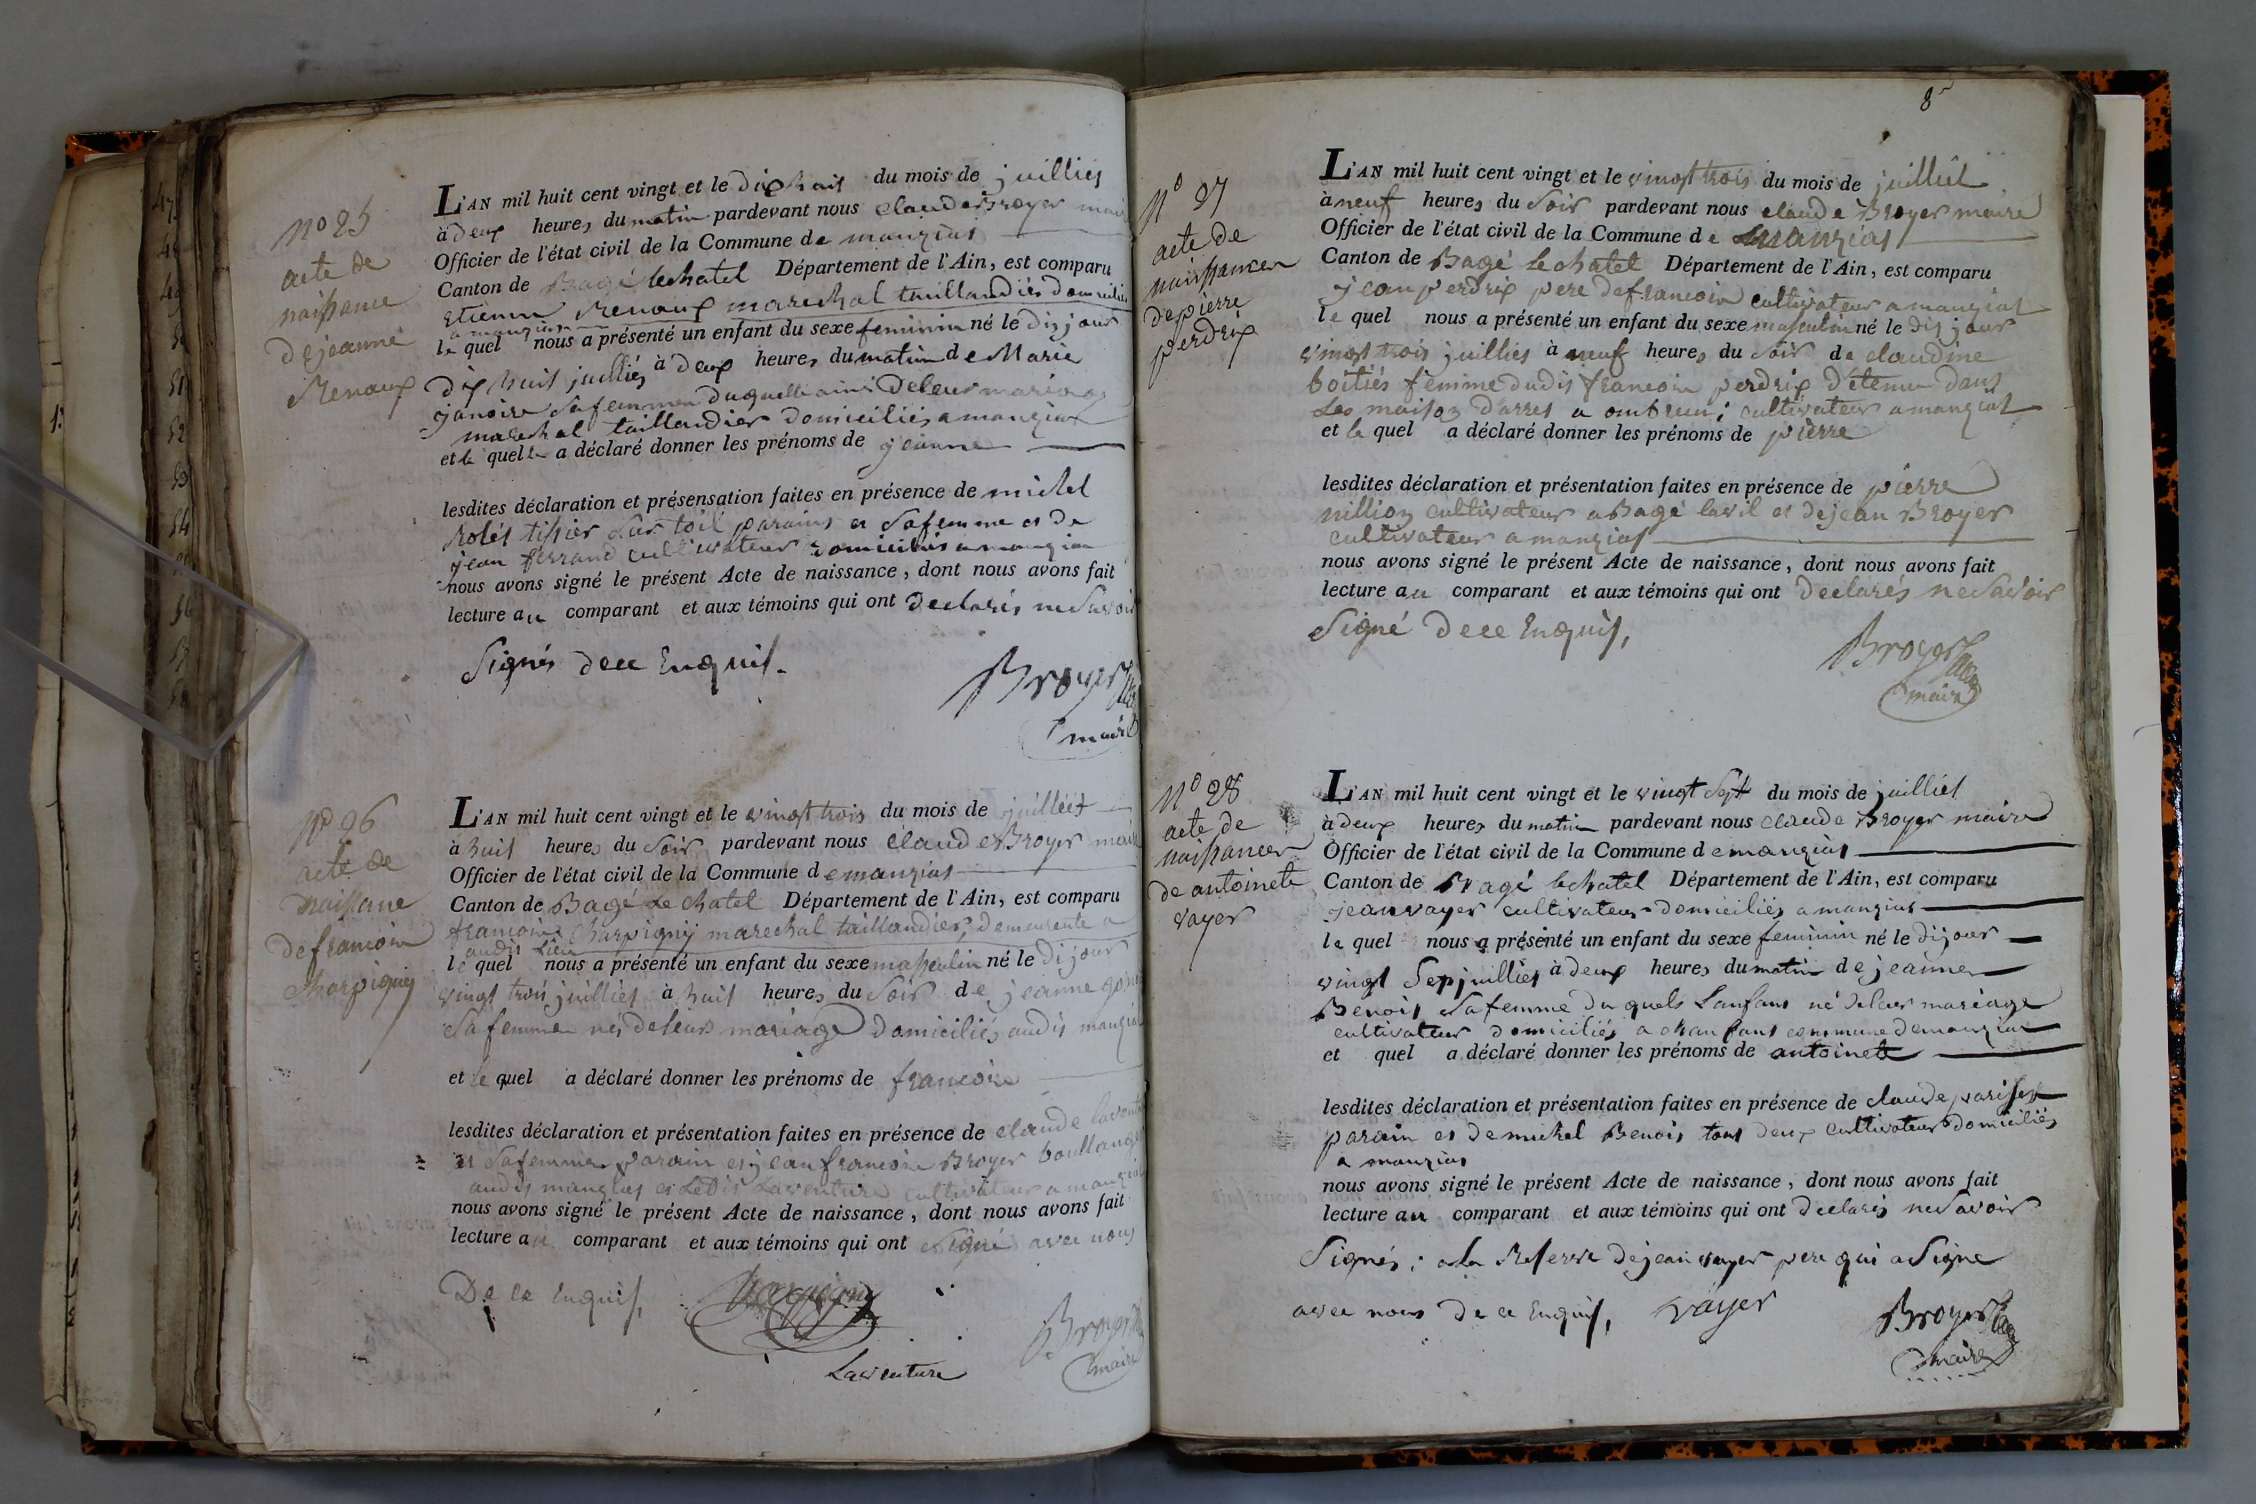 47
49
51
52
53
54
56
57
58
N° 25
acte de
naissance
de jeanne
Renoux
L'AN mil huit cent vingt et le dix huit du mois de juilliés
à deux heures du matin pardevant nous claude Broyer maire
Officier de l'état civil de la Commune de manzias
Canton de Bagé lechatel Département de l'Ain, est comparu
etienne Renoux marechal taillandiés domicilié
a manzias
le quel nous a présenté un enfant du sexe feminin né le dis jour
dix huit juilliés à deux heures du matin de Marie
janoire sa femme duquelle ainsi de leur mariage
marechal taillandier domiciliés a manziat
et le quel a déclaré donner les prénoms de jeanne
lesdites déclaration et présensation faites en présence de michel
Rolés tissier sur toil parains et sa femme et de
jean ferrand cultivateur domiciliés a manzias
nous avons signé le présent Acte de naissance, dont nous avons fait
lecture au comparant et aux témoins qui ont declarés ne savoir
Signés de ce Enquis.
Broyer
maire
N° 26
acte de
naissance
de francois
Charpigny
L'AN mil huit cent vingt et le vingt trois du mois de juilléet
à huit heures du soir pardevant nous claude Broyer maire
Officier de l'état civil de la Commune de manzias
Canton de Bagé Le chatel Département de l'Ain, est comparu
francois Charpigny marechal taillandier, demeurente a
audis lieu
le quel nous a présenté un enfant du sexe masculin né le dijour
vingt trois juilliés à huit heures du soir de jeanne
sa femme nés de leurs mariage domiciliés audis manziat
et le quel a déclaré donner les prénoms de francois
lesdites déclaration et présentation faites en présence de claude laventure
et sa femme parain et jean francois Broyer boullanger
audis manzias et ledis Laventure cultivateur a manziat
nous avons signé le présent Acte de naissance, dont nous avons fait
lecture au comparant et aux témoins qui ont signé avec nous
De ce Enquis,
Charpigny
Laventure
Broyer
maire
8
N° 27
acte de
naissance
de pierre
perdrix
L'AN mil huit cent vingt et le vingt trois du mois de juilliét
à neuf heures du soir pardevant nous claude Broyer maire
Officier de l'état civil de la Commune de manzias
Canton de Bagé le chatel Département de l'Ain, est comparu
jean perdrix pere de francois cultivateur a manziat
le quel nous a présenté un enfant du sexe masculin né le dis jour
vingt trois juilliés à neuf heures du soir de claudine
boitiés femme dudis francois perdrix d'étenu dans
Les maison d'arres a cultivateur a manziat
et le quel a déclaré donner les prénoms de pierre
lesdites déclaration et présentation faites en présence de pierre
million cultivateur a Bagé lavil et de jean Broyer
cultivateur a manzias
nous avons signé le présent Acte de naissance, dont nous avons fait
lecture au comparant et aux témoins qui ont declarés ne savoir
Signé de ce Enquis,
Broyer
maire
N° 28
acte de
naissance
de antoinete
vayer
L'AN mil huit cent vingt et le vingt Sept du mois de juilliét
à deux heures du matin pardevant nous claude Broyer maire
Officier de l'état civil de la Commune de manzias
Canton de Bagé lechatel Département de l'Ain, est comparu
jean vayer cultivateur domiciliés a manzias
le quel nous a présenté un enfant du sexe feminin né le dijour
vingt Sep juilliés à deux heures du matin de jeanne
Benois sa femme du quels Lanfans né de leur mariage
cultivateur domiciliés a chanfans commune de manzias
et quel a déclaré donner les prénoms de antoinete
lesdites déclaration et présentation faites en présence de claude pariset
parain et de michel Benois tous deux cultivateur domiciliés
a manzias
nous avons signé le présent Acte de naissance, dont nous avons fait
lecture au comparant et aux témoins qui ont declarés ne savoir
Signés; a La Reserve de jean vayer pere qui a Signe
avec nous De ce Enquis, vayer
Broyer
maire